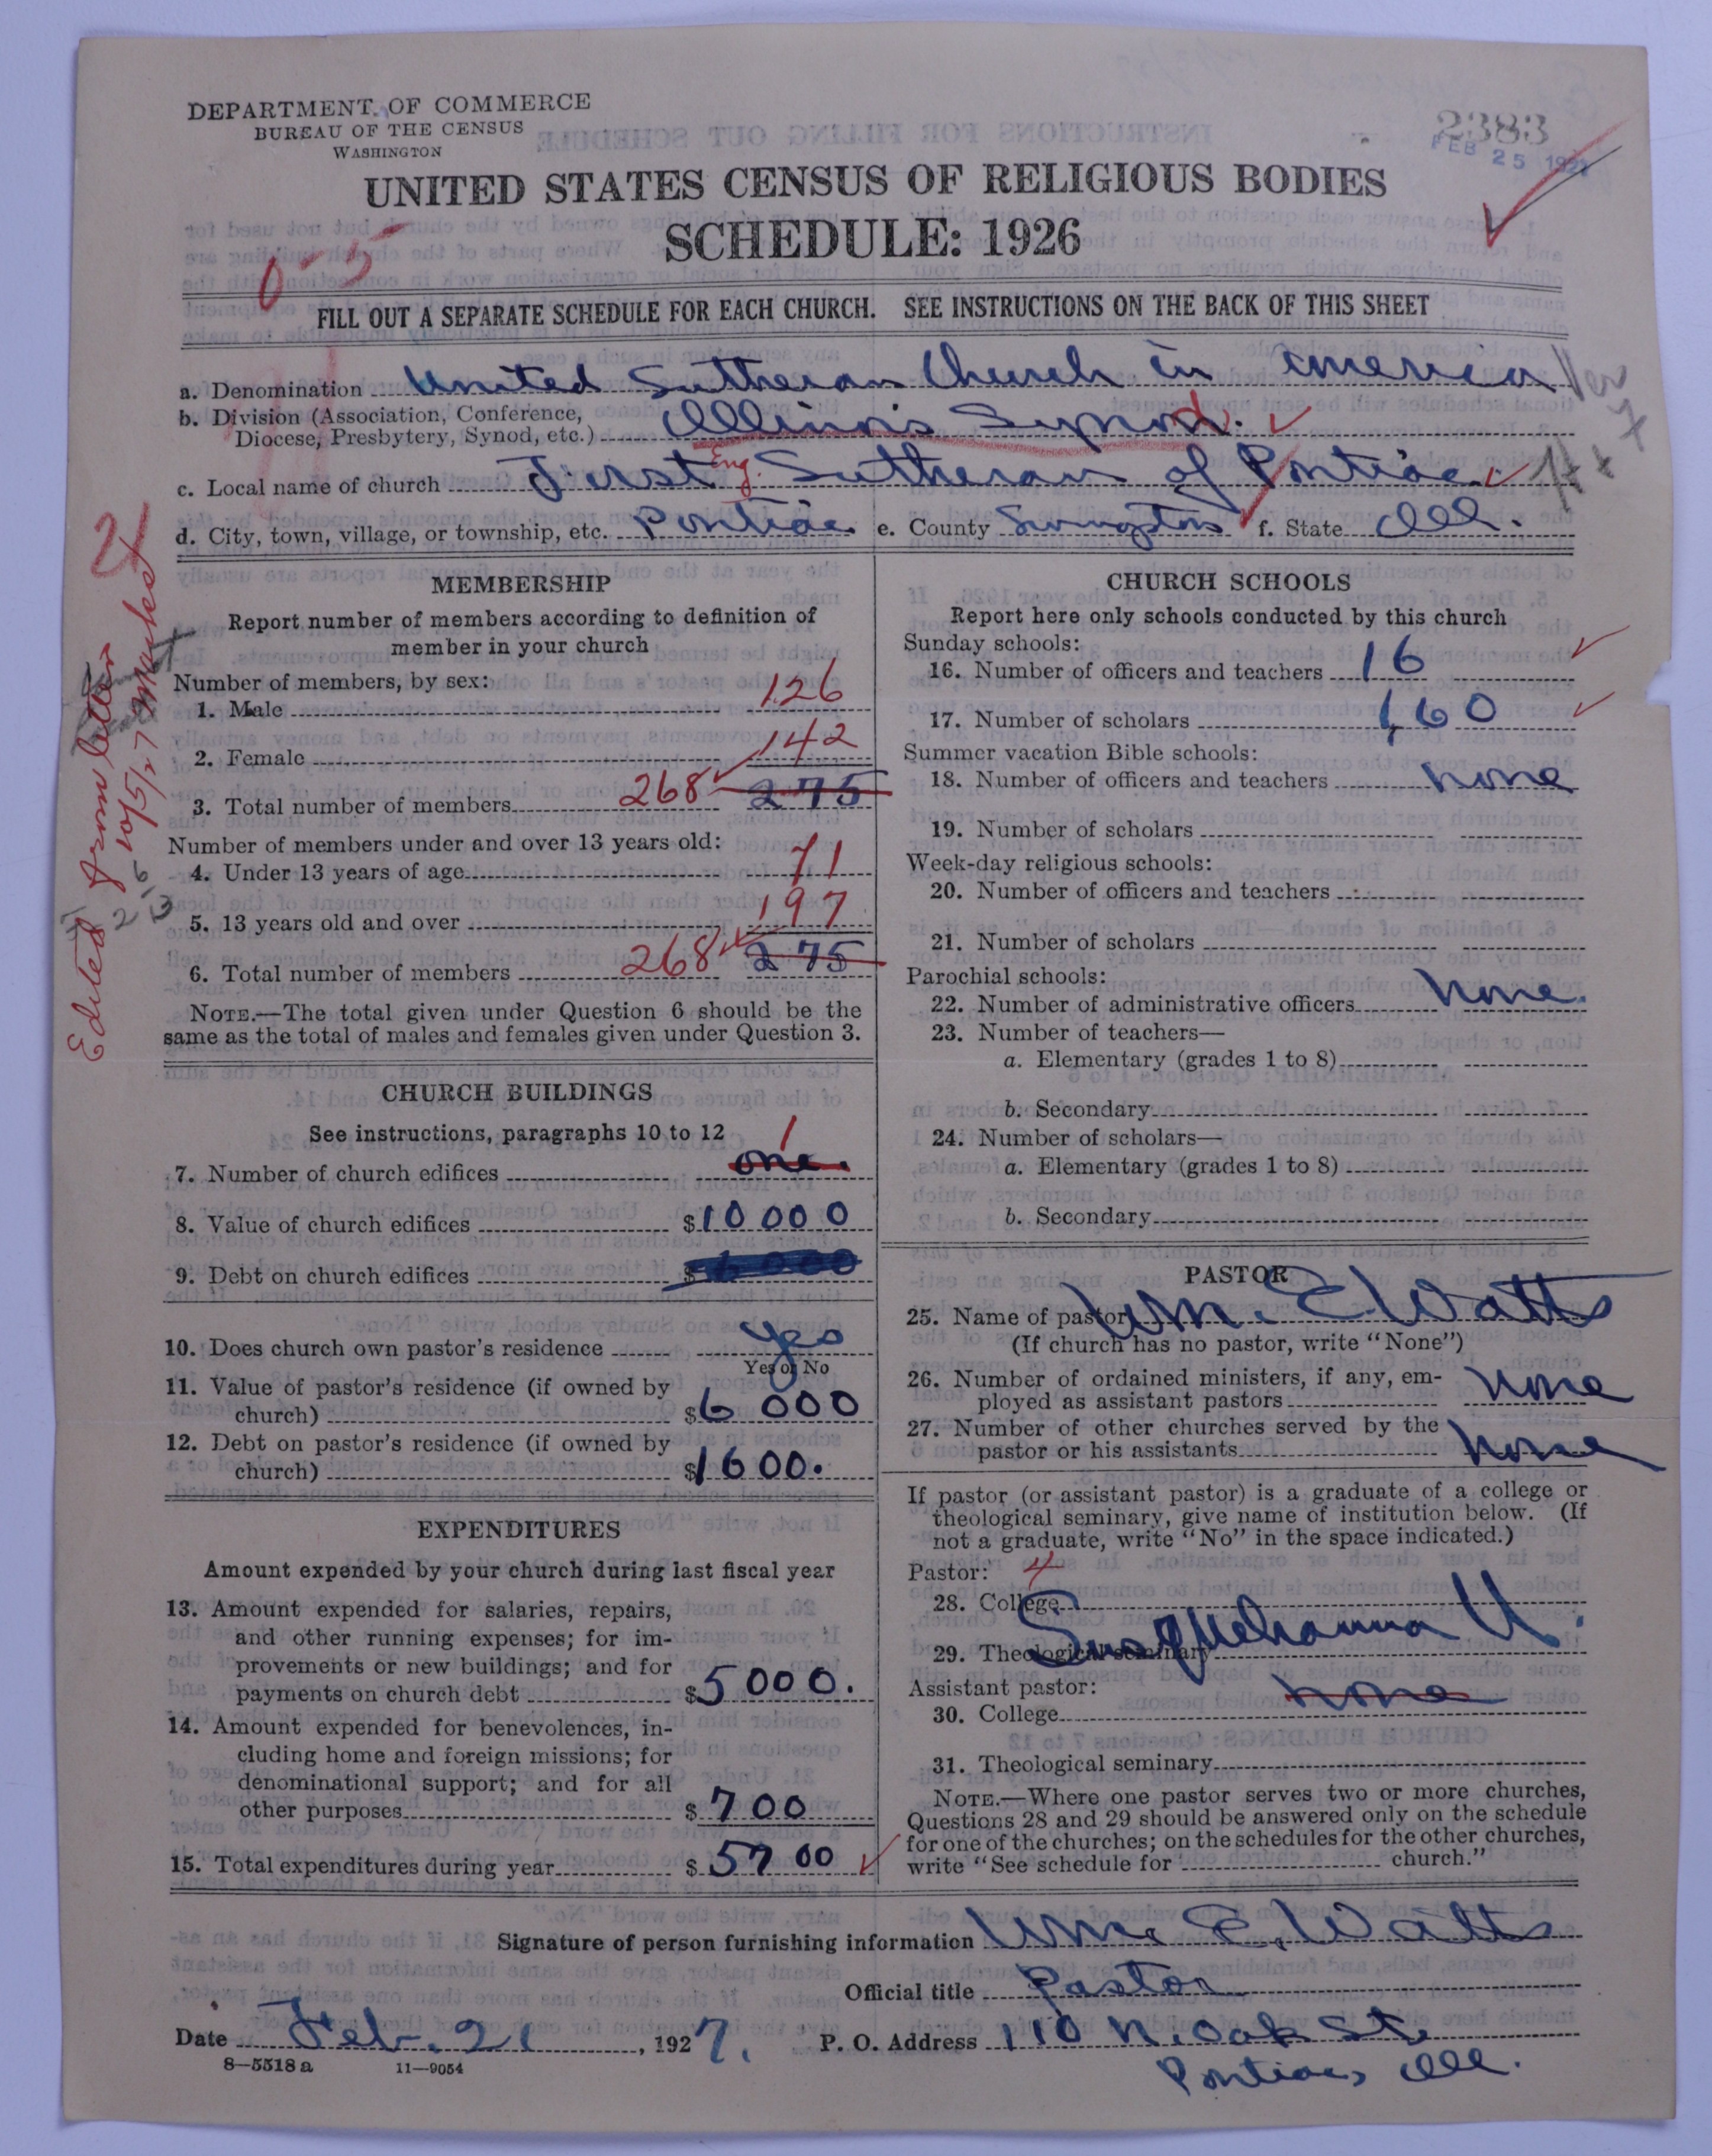 DEPARTMENT OF COMMERCE
BUREAU OF THE CENSUS
WASHINGTON
2383
FEB 25 1927
UNITED STATES CENSUS OF RELIGIOUS BODIES
SCHEDULE: 1926
0-5
FILL OUT A SEPARATE SCHEDULE FOR EACH CHURCH. SEE INSTRUCTIONS ON THE BACK OF THIS SHEET
a. Denomination United Lutheran Church in America
b. Division (Association, Conference, Diocese, Presbytery, Synod, etc.) Illinois Synod.
c. Local name of church First Eng. Lutheran of Pontiac
d. City, town, village, or township, etc. Pontiac e. County Livingston f. State Ill.
Edited from letter
10/5/27
MEMBERSHIP
Report number of members according to definition of
member in your church
Number of members, by sex:
1. Male 126
2. Female 142
3. Total number of members 268 275
Number of members under and over 13 years old:
4. Under 13 years of age 71
5. 13 years old and over 197
6. Total number of members 268 275
NOTE.—The total given under Question 6 should be the
same as the total of males and females given under Question 3.
CHURCH BUILDINGS
See instructions, paragraphs 10 to 12
7. Number of church edifices one. 1
8. Value of church edifices $10000
9. Debt on church edifices $6000
10. Does church own pastor's residence yes
Yes or No
11. Value of pastor's residence (if owned by
church) $6000
12. Debt on pastor's residence (if owned by
church) $1600.
EXPENDITURES
Amount expended by your church during last fiscal year
13. Amount expended for salaries, repairs,
and other running expenses; for im-
provements or new buildings; and for
payments on church debt $5000.
14. Amount expended for benevolences, in-
cluding home and foreign missions; for
denominational support; and for all
other purposes $700
15. Total expenditures during year $5700
CHURCH SCHOOLS
Report here only schools conducted by this church
Sunday schools:
16. Number of officers and teachers 16
17. Number of scholars 160
Summer vacation Bible schools:
18. Number of officers and teachers none
19. Number of scholars
Week-day religious schools:
20. Number of officers and teachers
21. Number of scholars
Parochial schools:
22. Number of administrative officers none.
23. Number of teachers—
a. Elementary (grades 1 to 8)
b. Secondary
24. Number of scholars—
a. Elementary (grades 1 to 8)
b. Secondary
PASTOR
25. Name of pastor Wm. E. Watts
(If church has no pastor, write "None")
26. Number of ordained ministers, if any, em-
ployed as assistant pastors none
27. Number of other churches served by the
pastor or his assistants none
If pastor (or assistant pastor) is a graduate of a college or
theological seminary, give name of institution below. (If
not a graduate, write "No" in the space indicated.)
Pastor: 4
28. College
Susquehanna U.
29. Theological seminary
Assistant pastor: none
30. College
31. Theological seminary
NOTE.—Where one pastor serves two or more churches,
Questions 28 and 29 should be answered only on the schedule
for one of the churches; on the schedules for the other churches,
write "See schedule for church."
Signature of person furnishing information Wm. E. Watts
Official title Pastor
Date Feb. 21, 1927. P. O. Address 110 N. Oak St.
Pontiac, Ill.
8—5518 a 11—9054